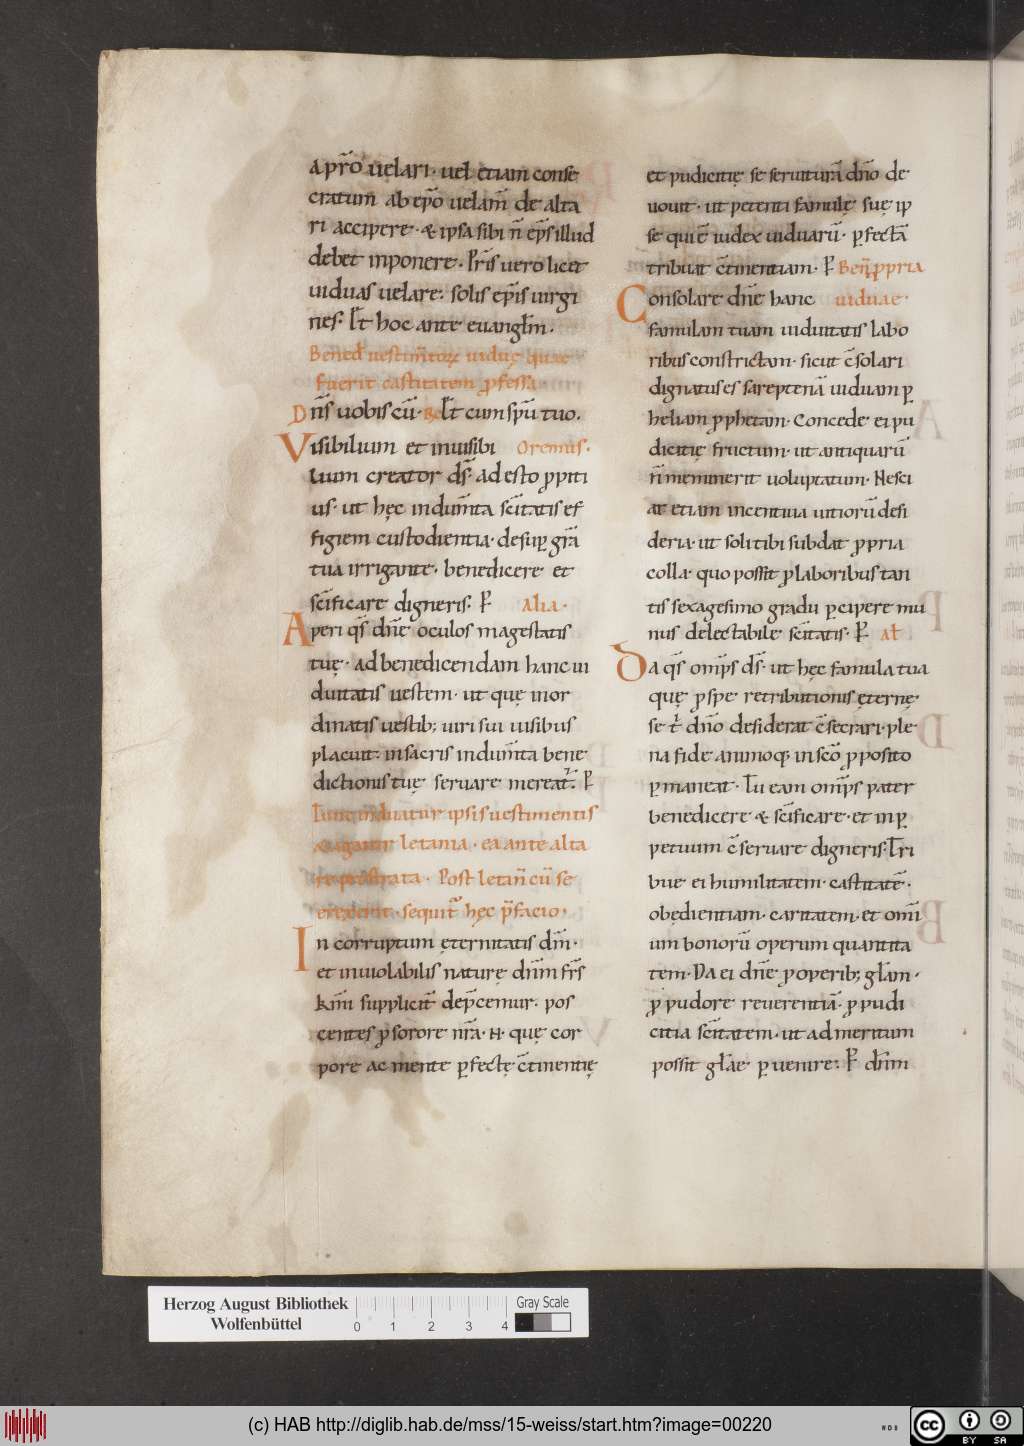 a pr̄o uelari· uel etiam conse
cratum ab ep̄o uelam̄ de alta
ri accipere· & ipsa sibi n̄ ep̄s illud
debet inponere· Pr̄is uero licet
uiduas uelare· solis ep̄is uirgi
nes· Ꝉt hoc ante euangłm̄·
Bened̄ uestim̄toꝝ uiduę quae
fuerit castitatem ꝓfessa·
Dn̄s uobiscū· Ꝉt cum sp̄u tuo.
Visibilium et inuisibi Oremus·
lium creator ds̄· adesto ꝓpiti
us· ut hęc indum̄ta sc̄itatis ef
figiem custodientia· desuꝑ gr̄a
tua irrigante· benedicere et
sc̄ificare digneris· P̄ Alia·
Aperi qs̄ dn̄e oculos magestatis
tuę· ad benedicendam hanc ui
duitatis uestem· ut quę inor
dinatis uestib; uiri sui uisibus
placuit· in sacris indum̄ta bene
dictionis tuę seruare mereat̄· P̄
Tunc induatur ipsis uestimentis
& agatur letania· ea ante alta
re prostrata· Post letan̄ cū se
erexerit· sequit̄ hęc p̄facio·
In corruptum ęternitatis dm̄·
et inuiolabilis naturę dn̄m fr̄s
km̄i suppliciť dep̄cemur· pos
centes ꝓ sorore nr̄a· N· quę cor
pore ac mente ꝑfectę c̄tinentię
et pudicitię se seruiturā dn̄o de
uouit· ut petenti famulę suę ip
se qui ē iudex uiduarū· ꝑfectā
tribuat c̄tinentiam· P̄ Ben̄ ꝓpria
Consolare dn̄e hanc uiduae·
famulam tuam uiduitatis labo
ribus constrictam· sicut c̄solari
dignatus es sareptenā uiduam ꝑ
heliam ꝓphetam· Concede ei pu
dicitię fructum· ut antiquarū
n̄ meminerit uoluptatum· Nesci
at etiam incentiua uitiorū desi
deria· ut soli tibi subdat ꝓpria
colla· quo possit ꝓ laboribus tan
tis sexagesimo gradu ꝑcipere mu
nus delectabile sc̄itatis· P̄ Ał
Da qs̄ omp̄s ds̄· ut hęc famula tua
quę ꝓ spe retributionis ęternę·
se t̄ dn̄o desiderat c̄secrari· ple
na fide animoq; in sc̄o ꝓposito
ꝑmaneat· Tu eam omp̄s pater
benedicere & sc̄ificare· et in ꝑ
petuum c̄seruare digneris· Tri
bue ei humilitatem· castitatē·
obędientiam· caritatem· et omī
um bonorū operum quantita
tem· Da ei dn̄e ꝓ operib; głam·
ꝓ pudore reuerentiā· ꝓ pudi
citia sc̄itatem· ut ad meritum
possit głae ꝑuenire· P̄ dn̄m
Herzog August Bibliothek
Wolfenbüttel
0 1 2 3 4
Gray Scale
(c) HAB http://diglib.hab.de/mss/15-weiss/start.htm?image=00220
WDB
cc BY SA